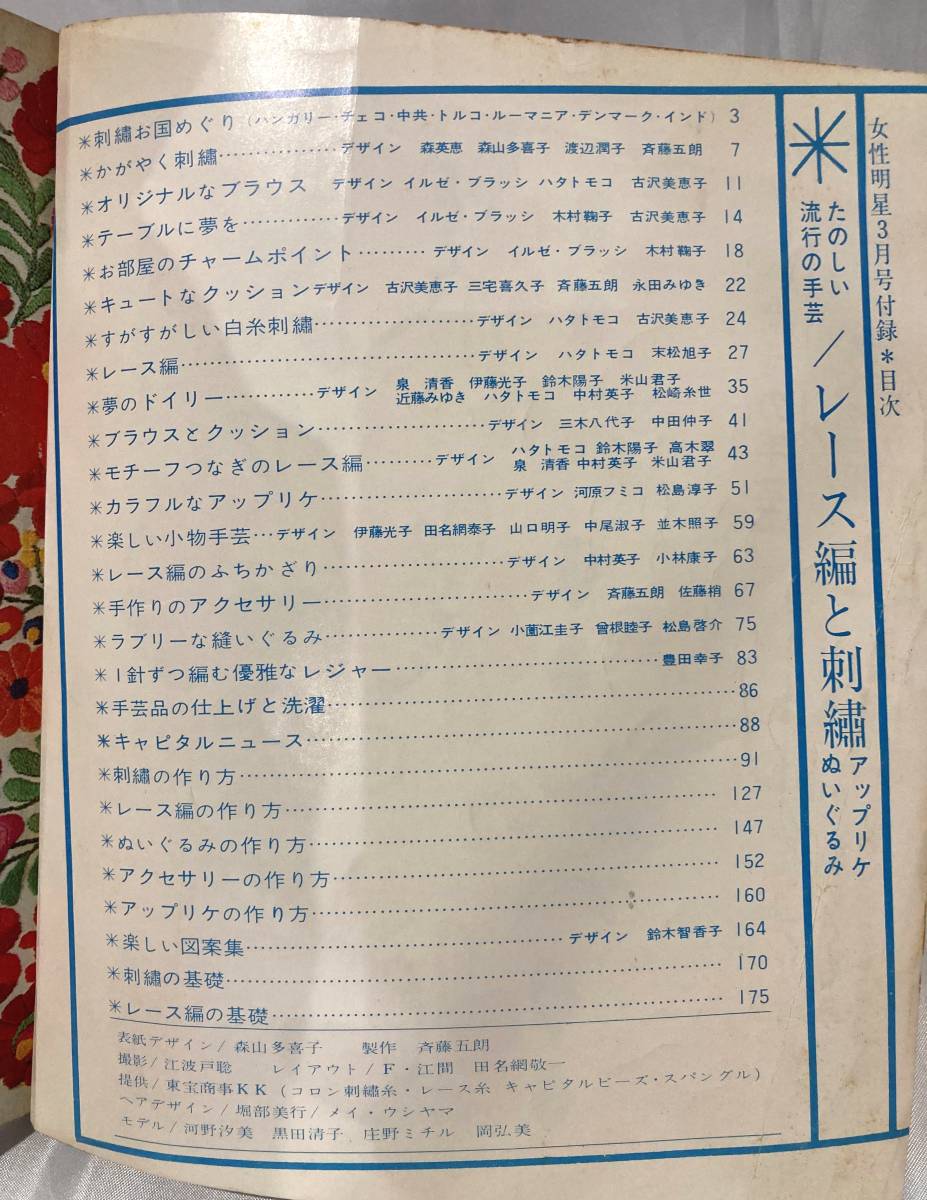 女性明星3月号付録*目次
たのしい
流行の手芸
/レース編と刺繡
アップリケ
ぬいぐるみ
*刺繡お国めぐり(ハンガリー・チェコ・中共・トルコ・ルーマニア・デンマーク・インド) 3
*かがやく刺繡……………デザイン 森英恵 森山多喜子 渡辺潤子 斉藤五朗 7
*オリジナルなブラウス デザイン イルゼ・ブラッシ ハタトモコ 古沢美恵子 11
*テーブルに夢を…………デザイン イルゼ・ブラッシ 木村鞠子 古沢美恵子 14
*お部屋のチャームポイント………デザイン イルゼ・ブラッシ 木村鞠子 18
*キュートなクッション デザイン 古沢美恵子 三宅喜久子 斉藤五朗 永田みゆき 22
*すがすがしい白糸刺繡…………………デザイン ハタトモコ 古沢美恵子 24
*レース編…………………………………デザイン ハタトモコ 末松旭子 27
*夢のドイリー…………デザイン 泉 清香 伊藤光子 鈴木陽子 米山君子
近藤みゆき ハタトモコ 中村英子 松崎糸世 35
*ブラウスとクッション…………………デザイン 三木八代子 中田仲子 41
*モチーフつなぎのレース編………デザイン ハタトモコ 鈴木陽子 高木翠
泉 清香 中村英子 米山君子 43
*カラフルなアップリケ…………………デザイン 河原フミコ 松島淳子 51
*楽しい小物手芸…デザイン 伊藤光子 田名網泰子 山口明子 中尾淑子 並木照子 59
*レース編のふちかざり…………………デザイン 中村英子 小林康子 63
*手作りのアクセサリー…………………デザイン 斉藤五朗 佐藤梢 67
*ラブリーな縫いぐるみ…………デザイン 小薗江圭子 曾根睦子 松島啓介 75
*1針ずつ編む優雅なレジャー…………………………豊田幸子 83
*手芸品の仕上げと洗濯……………………………………86
*キャピタルニュース………………………………………88
*刺繡の作り方………………………………………………91
*レース編の作り方…………………………………………127
*ぬいぐるみの作り方………………………………………147
*アクセサリーの作り方……………………………………152
*アップリケの作り方………………………………………160
*楽しい図案集……………………………デザイン 鈴木智香子 164
*刺繡の基礎…………………………………………………170
*レース編の基礎……………………………………………175
表紙デザイン/森山多喜子 製作 斉藤五朗
撮影/江波戸聡 レイアウト/F・江間 田名網敬一
提供/東宝商事KK(コロン刺繡糸・レース糸 キャピタルビーズ・スパングル)
ヘアデザイン/堀部美行/メイ・ウシヤマ
モデル/河野汐美 黒田清子 庄野ミチル 岡弘美